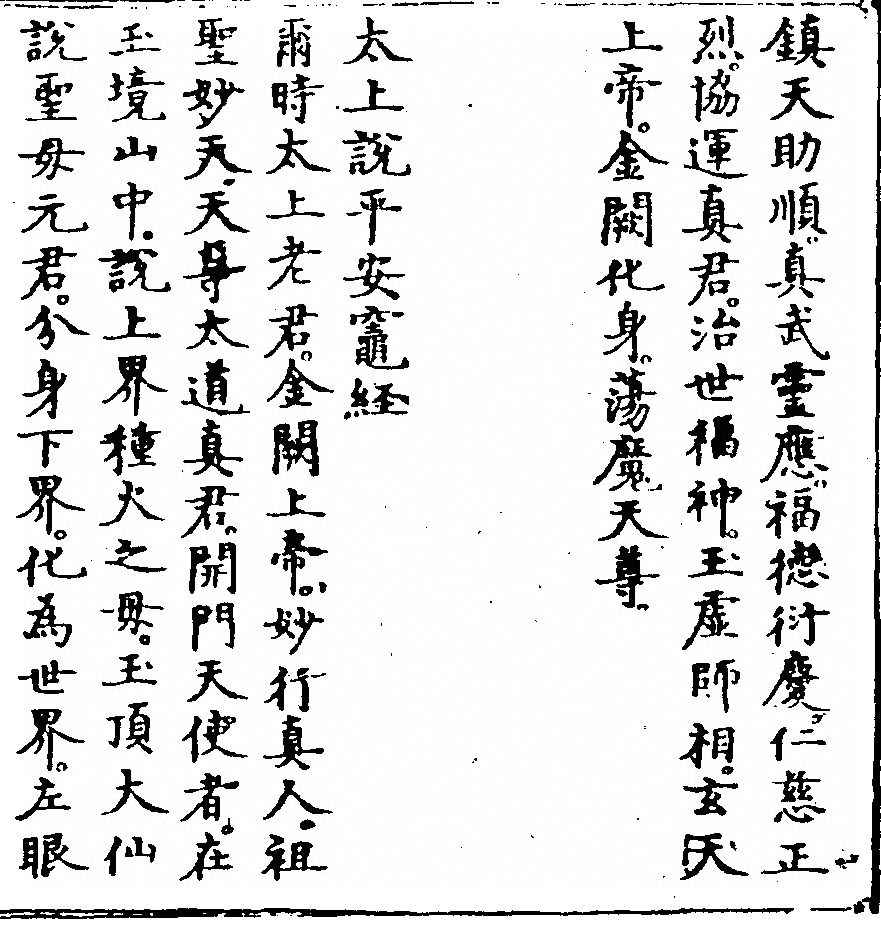 鎮天助順真武靈應福德衍慶仁慈正
烈協運真君治世福神玉虛師相玄天
上帝金闕化身蕩魔天尊
太上說平安竈経
爾時太上老君金闕上帝妙行真人祖
聖妙天天尊太道真君開門天使者在
玉境山中說上界種火之母玉頂大仙
說聖母元君分身下界化為世界左眼